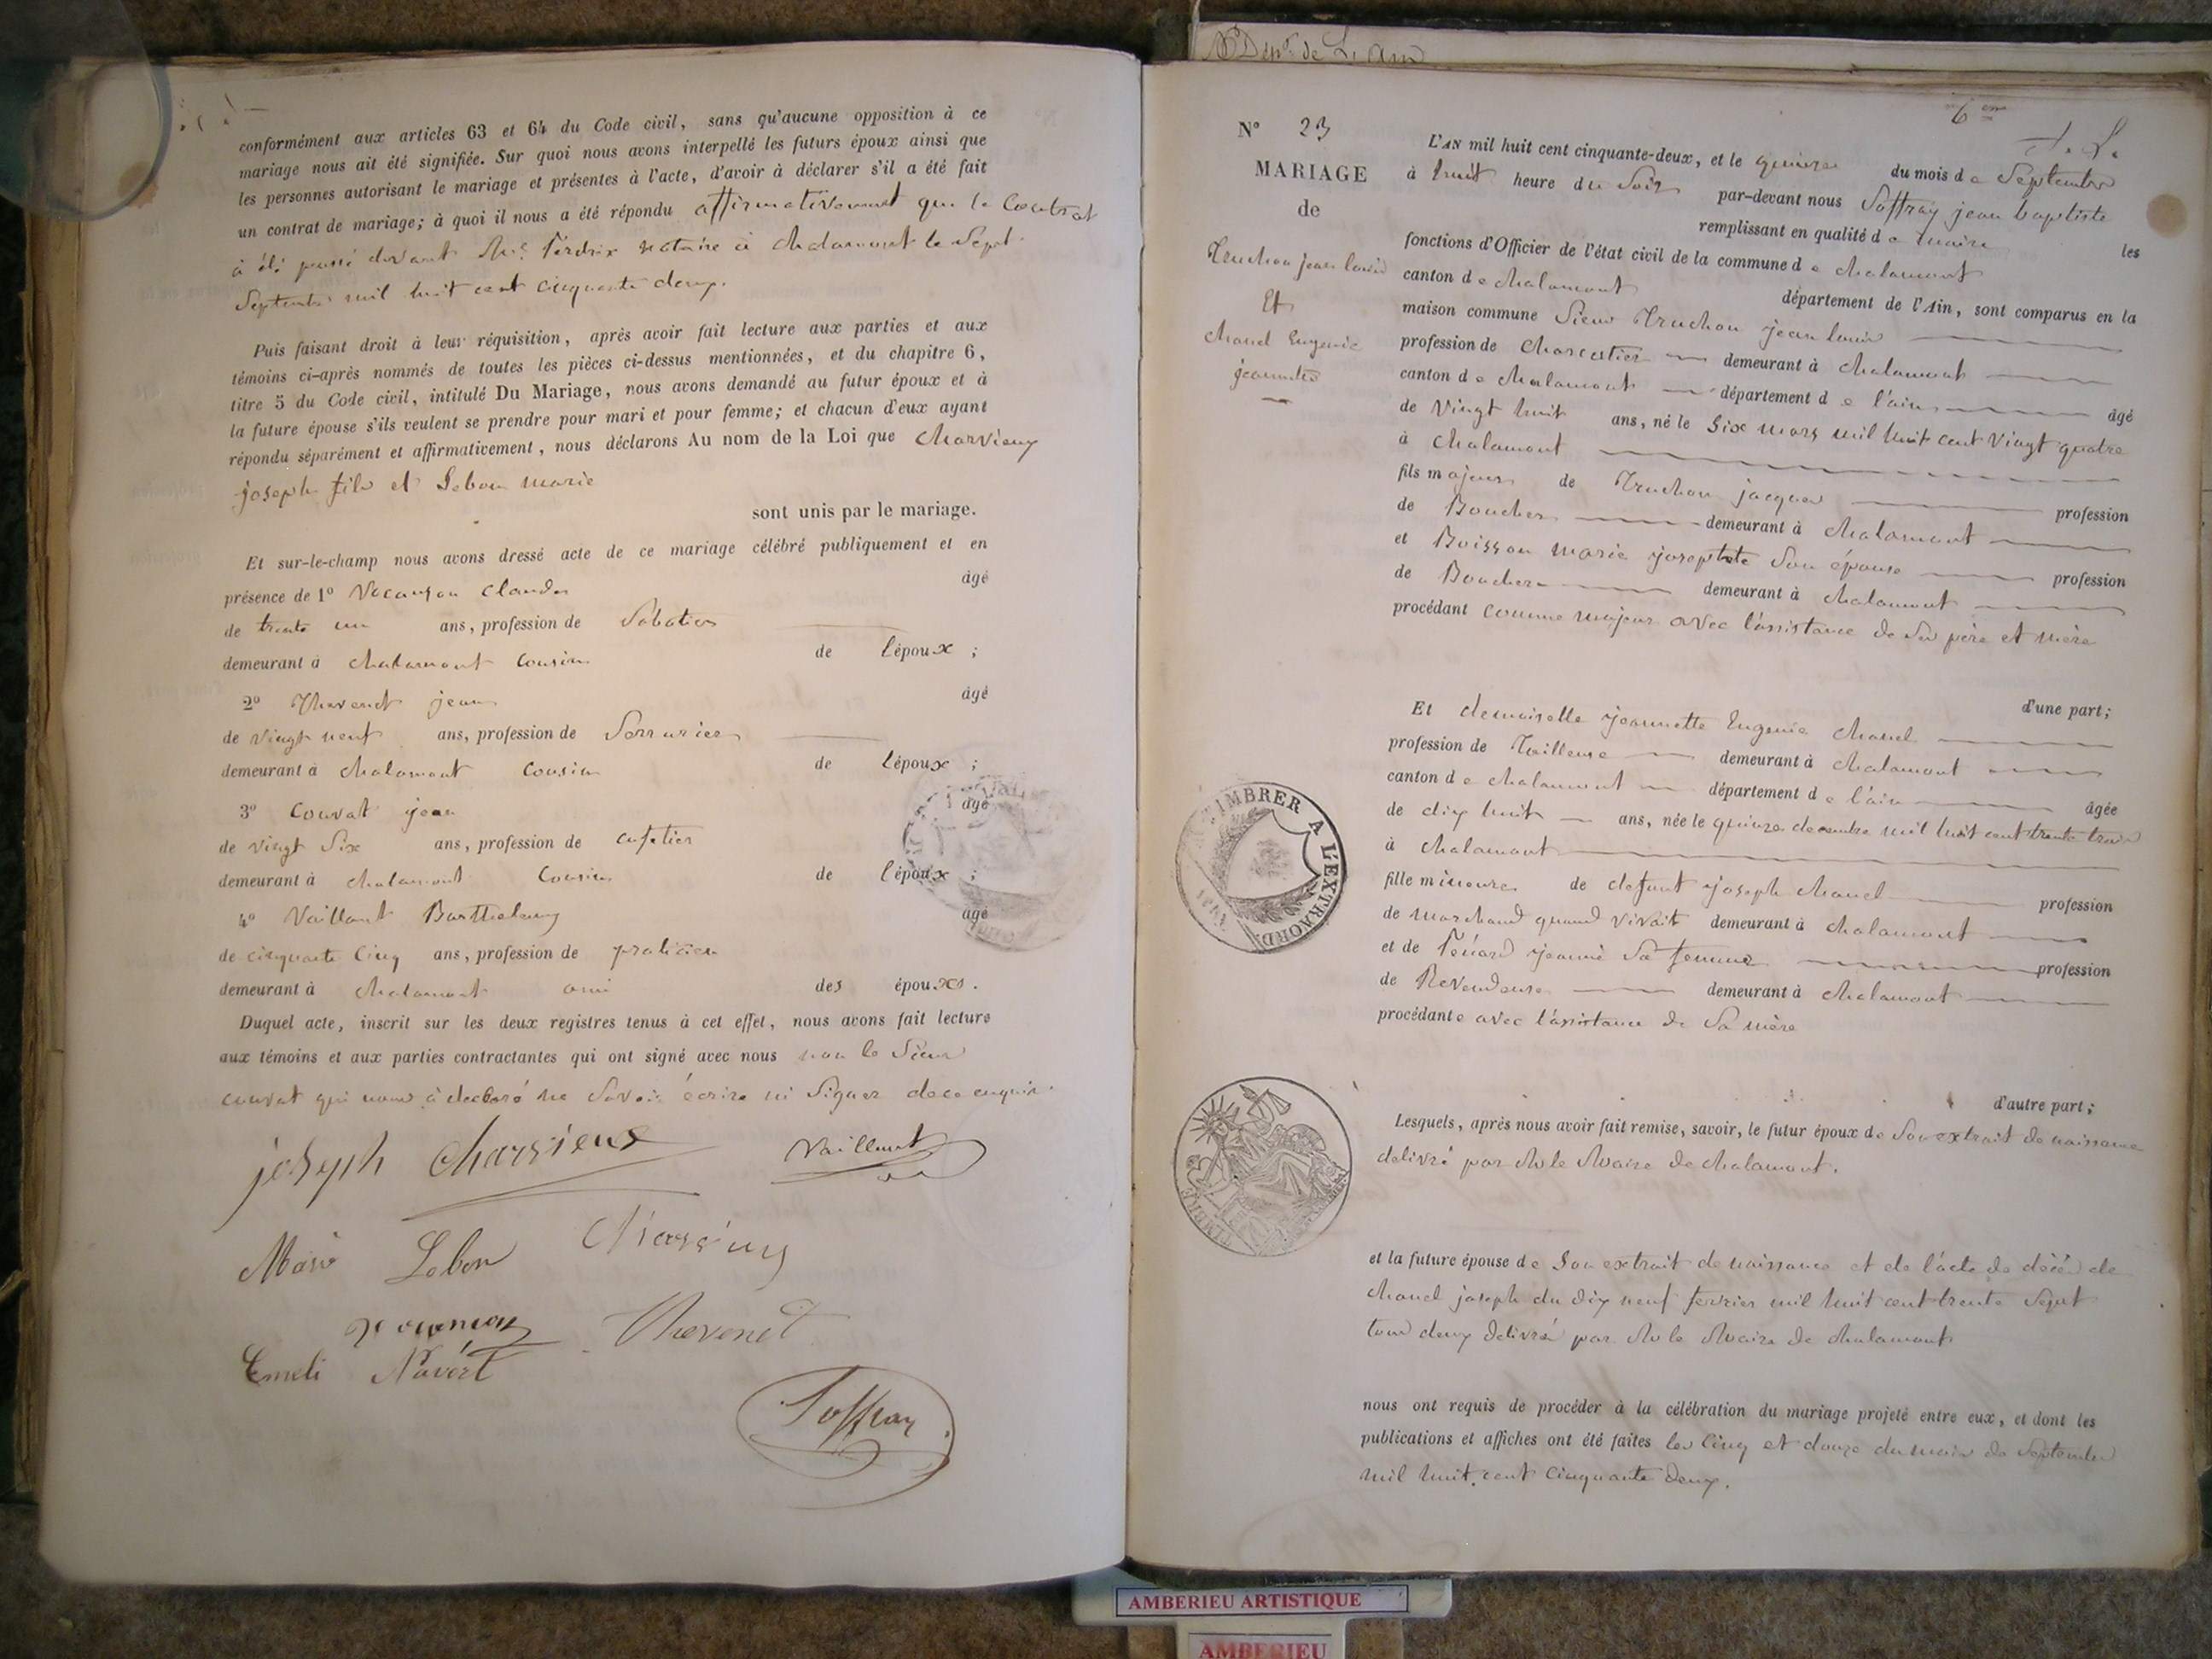 conformément aux articles 63 et 64 du Code civil, sans qu'aucune opposition à ce
mariage nous ait été signifiée. Sur quoi nous avons interpellé les futurs époux ainsi que
les personnes autorisant le mariage et présentes à l'acte, d'avoir à déclarer s'il a été fait
un contrat de mariage; à quoi il nous a été répondu affirmativement que le Contrat
à été passé devant Me Perdrix notaire à chalamont le Sept
Septembre mil huit cent cinquante deux.
Puis faisant droit à leur réquisition, après avoir fait lecture aux parties et aux
témoins ci-après nommés de toutes les pièces ci-dessus mentionnées, et du chapitre 6,
titre 5 du Code civil, intitulé Du Mariage, nous avons demandé au futur époux et à
la future épouse s'ils veulent se prendre pour mari et pour femme; et chacun d'eux ayant
répondu séparément et affirmativement, nous déclarons Au nom de la Loi que Charvieux
joseph fils et Lebon marie
sont unis par le mariage.
Et sur-le-champ nous avons dressé acte de ce mariage célébré publiquement et en
présence de 1º Vocanson Claude âgé
de trente un ans, profession de Sabotier
demeurant à chalamont Cousin de l'époux ;
2º Thevenet jean âgé
de vingt neuf ans, profession de Serrurier
demeurant à chalamont Cousin de l'époux ;
3º Couvat jean âgé
de vingt Six ans, profession de cafetier
demeurant à chalamont Cousin de l'époux ;
4º Vaillant Barthelemy âgé
de cinquante Cinq ans, profession de praticien
demeurant à chalamont ami des époux.
Duquel acte, inscrit sur les deux registres tenus à cet effet, nous avons fait lecture
aux témoins et aux parties contractantes qui ont signé avec nous non le Sieur
couvat qui nous à declaré ne Savoir écrire ni Signer de ce enquis.
joseph Charvieux Vaillant
Marie Lebon Charvieux
Vocanson Thevenet
Emeli Navért
Soffray
Dépt de L'Ain
6me
Nº 23
MARIAGE
de
Truchon jean louis
Et
Chanel Eugenie
jeannette
L'AN mil huit cent cinquante-deux, et le quinze du mois de Septembre
à huit heure du Soir par-devant nous Soffray jean baptiste
remplissant en qualité de maire les
fonctions d'Officier de l'état civil de la commune de chalamont
canton de chalamont département de l'Ain, sont comparus en la
maison commune Sieur Truchon jean louis
profession de Charcutier demeurant à chalamont
canton de chalamont département de l'ain âgé
de vingt huit ans, né le Six mars mil huit cent vingt quatre
à chalamont
fils majeur de Truchon jacques profession
de Boucher demeurant à chalamont
et Boisson marie josephte Son épouse profession
de Bouchere demeurant à chalamont
procédant comme majeur avec l'assistance de Ses père et mère
d'une part;
Et demoiselle jeannette Eugenie Chanel
profession de Tailleuse demeurant à chalamont
canton de chalamont département de l'ain âgée
de dix huit ans, née le quinze decembre mil huit cent trente trois
à chalamont
fille mineure de defunt joseph Chanel profession
de marchand quand vivait demeurant à chalamont
et de Penard jeanne Sa femme profession
de Revendeuse demeurant à chalamont
procédante avec l'assistance de Sa mère
d'autre part;
Lesquels, après nous avoir fait remise, savoir, le futur époux de Son extrait de naissance
délivré par M le Maire de chalamont.
et la future épouse de Son extrait de naissance et de l'acte de décès de
Chanel joseph du dix neuf fevrier mil huit cent trente Sept
tous deux delivrés par M le Maire de chalamont
nous ont requis de procéder à la célébration du mariage projeté entre eux, et dont les
publications et affiches ont été faites les Cinq et douze du mois de Septembre
mil huit cent cinquante deux.
TIMBRER A L'EXTRAORD
TIMBRE
AMBERIEU ARTISTIQUE
AMBERIEU